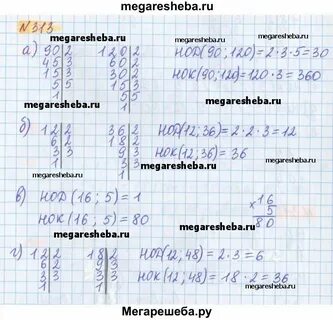 megaresheba.ru megaresheba.ru
№313
а) 90 2 120 2 НОД(90; 120)=2·3·5=30
45 3 60 2
15 3 30 2 НОК(90; 120)=120·3=360
5 5 15 5
1
megaresheba.ru megaresheba.ru
б) 12 2 36 2 НОД(12; 36)=2·2·3=12
6 2 18 2
3 3 9 3 НОК(12; 36)=36
1 3 3
1
megaresheba.ru megaresheba.ru
в) НОД(16; 5)=1 ×16
5
НОК(16; 5)=80 80
megaresheba.ru megaresheba.ru
г) 12 2 18 2 НОД(12, 48)=2·3=6
6 2 9 3
3 3 3 3 НОК(12, 48)=18·2=36
1 1
megaresheba.ru megaresheba.ru
Мегарешеба.ру